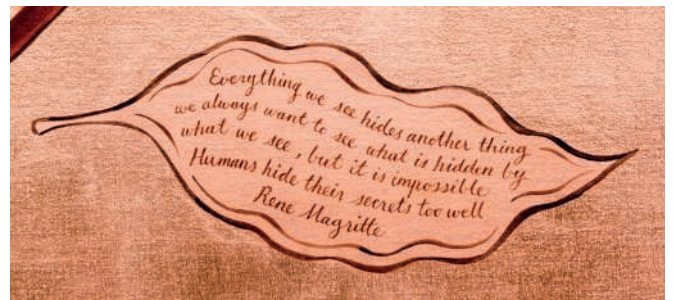 Everything we see hides another thing
we always want to see what is hidden by
what we see, but it is impossible
Humans hide their secrets too well
Rene Magritte